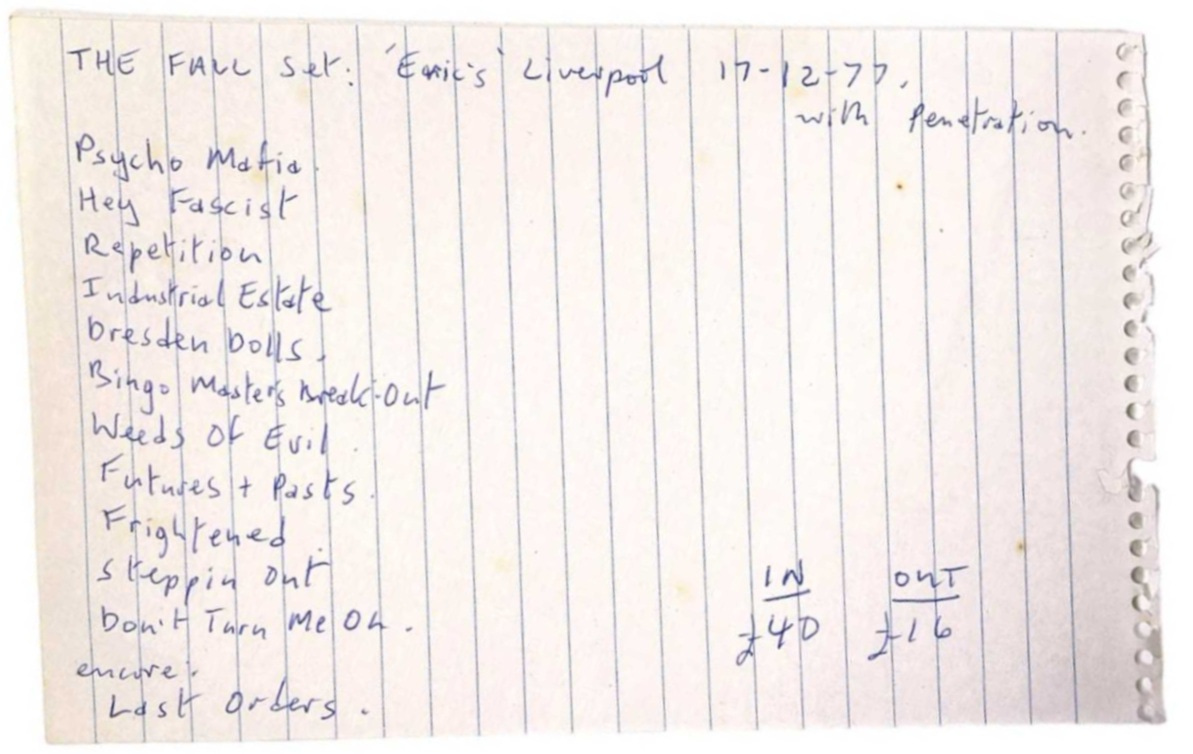 THE FALL Set: 'Eric's' Liverpool 17-12-77.
with Penetration.
Psycho Mafia.
Hey Fascist
Repetition
Industrial Estate
Dresden Dolls.
Bingo Master's Break-Out
Weeds Of Evil.
Futures + Pasts.
Frightened.
Steppin Out
Don't Turn Me On.
encore:
Last Orders.
IN OUT
£40 £16